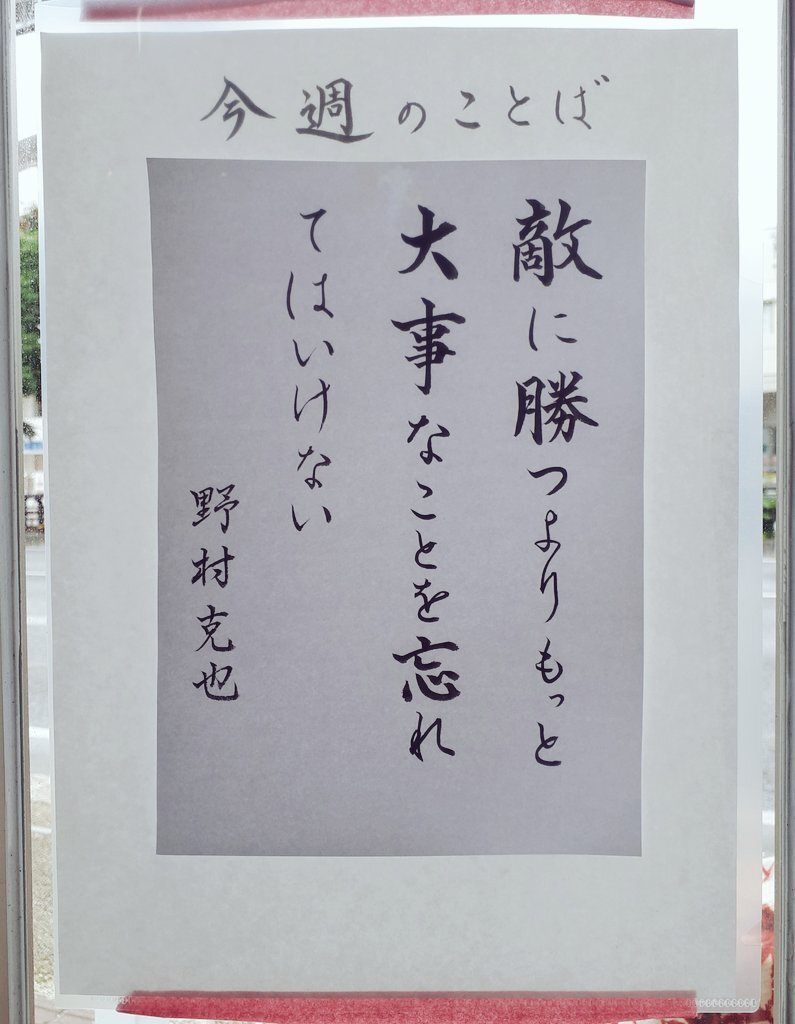 今週のことば
敵に勝つよりもっと
大事なことを忘れ
てはいけない
野村克也